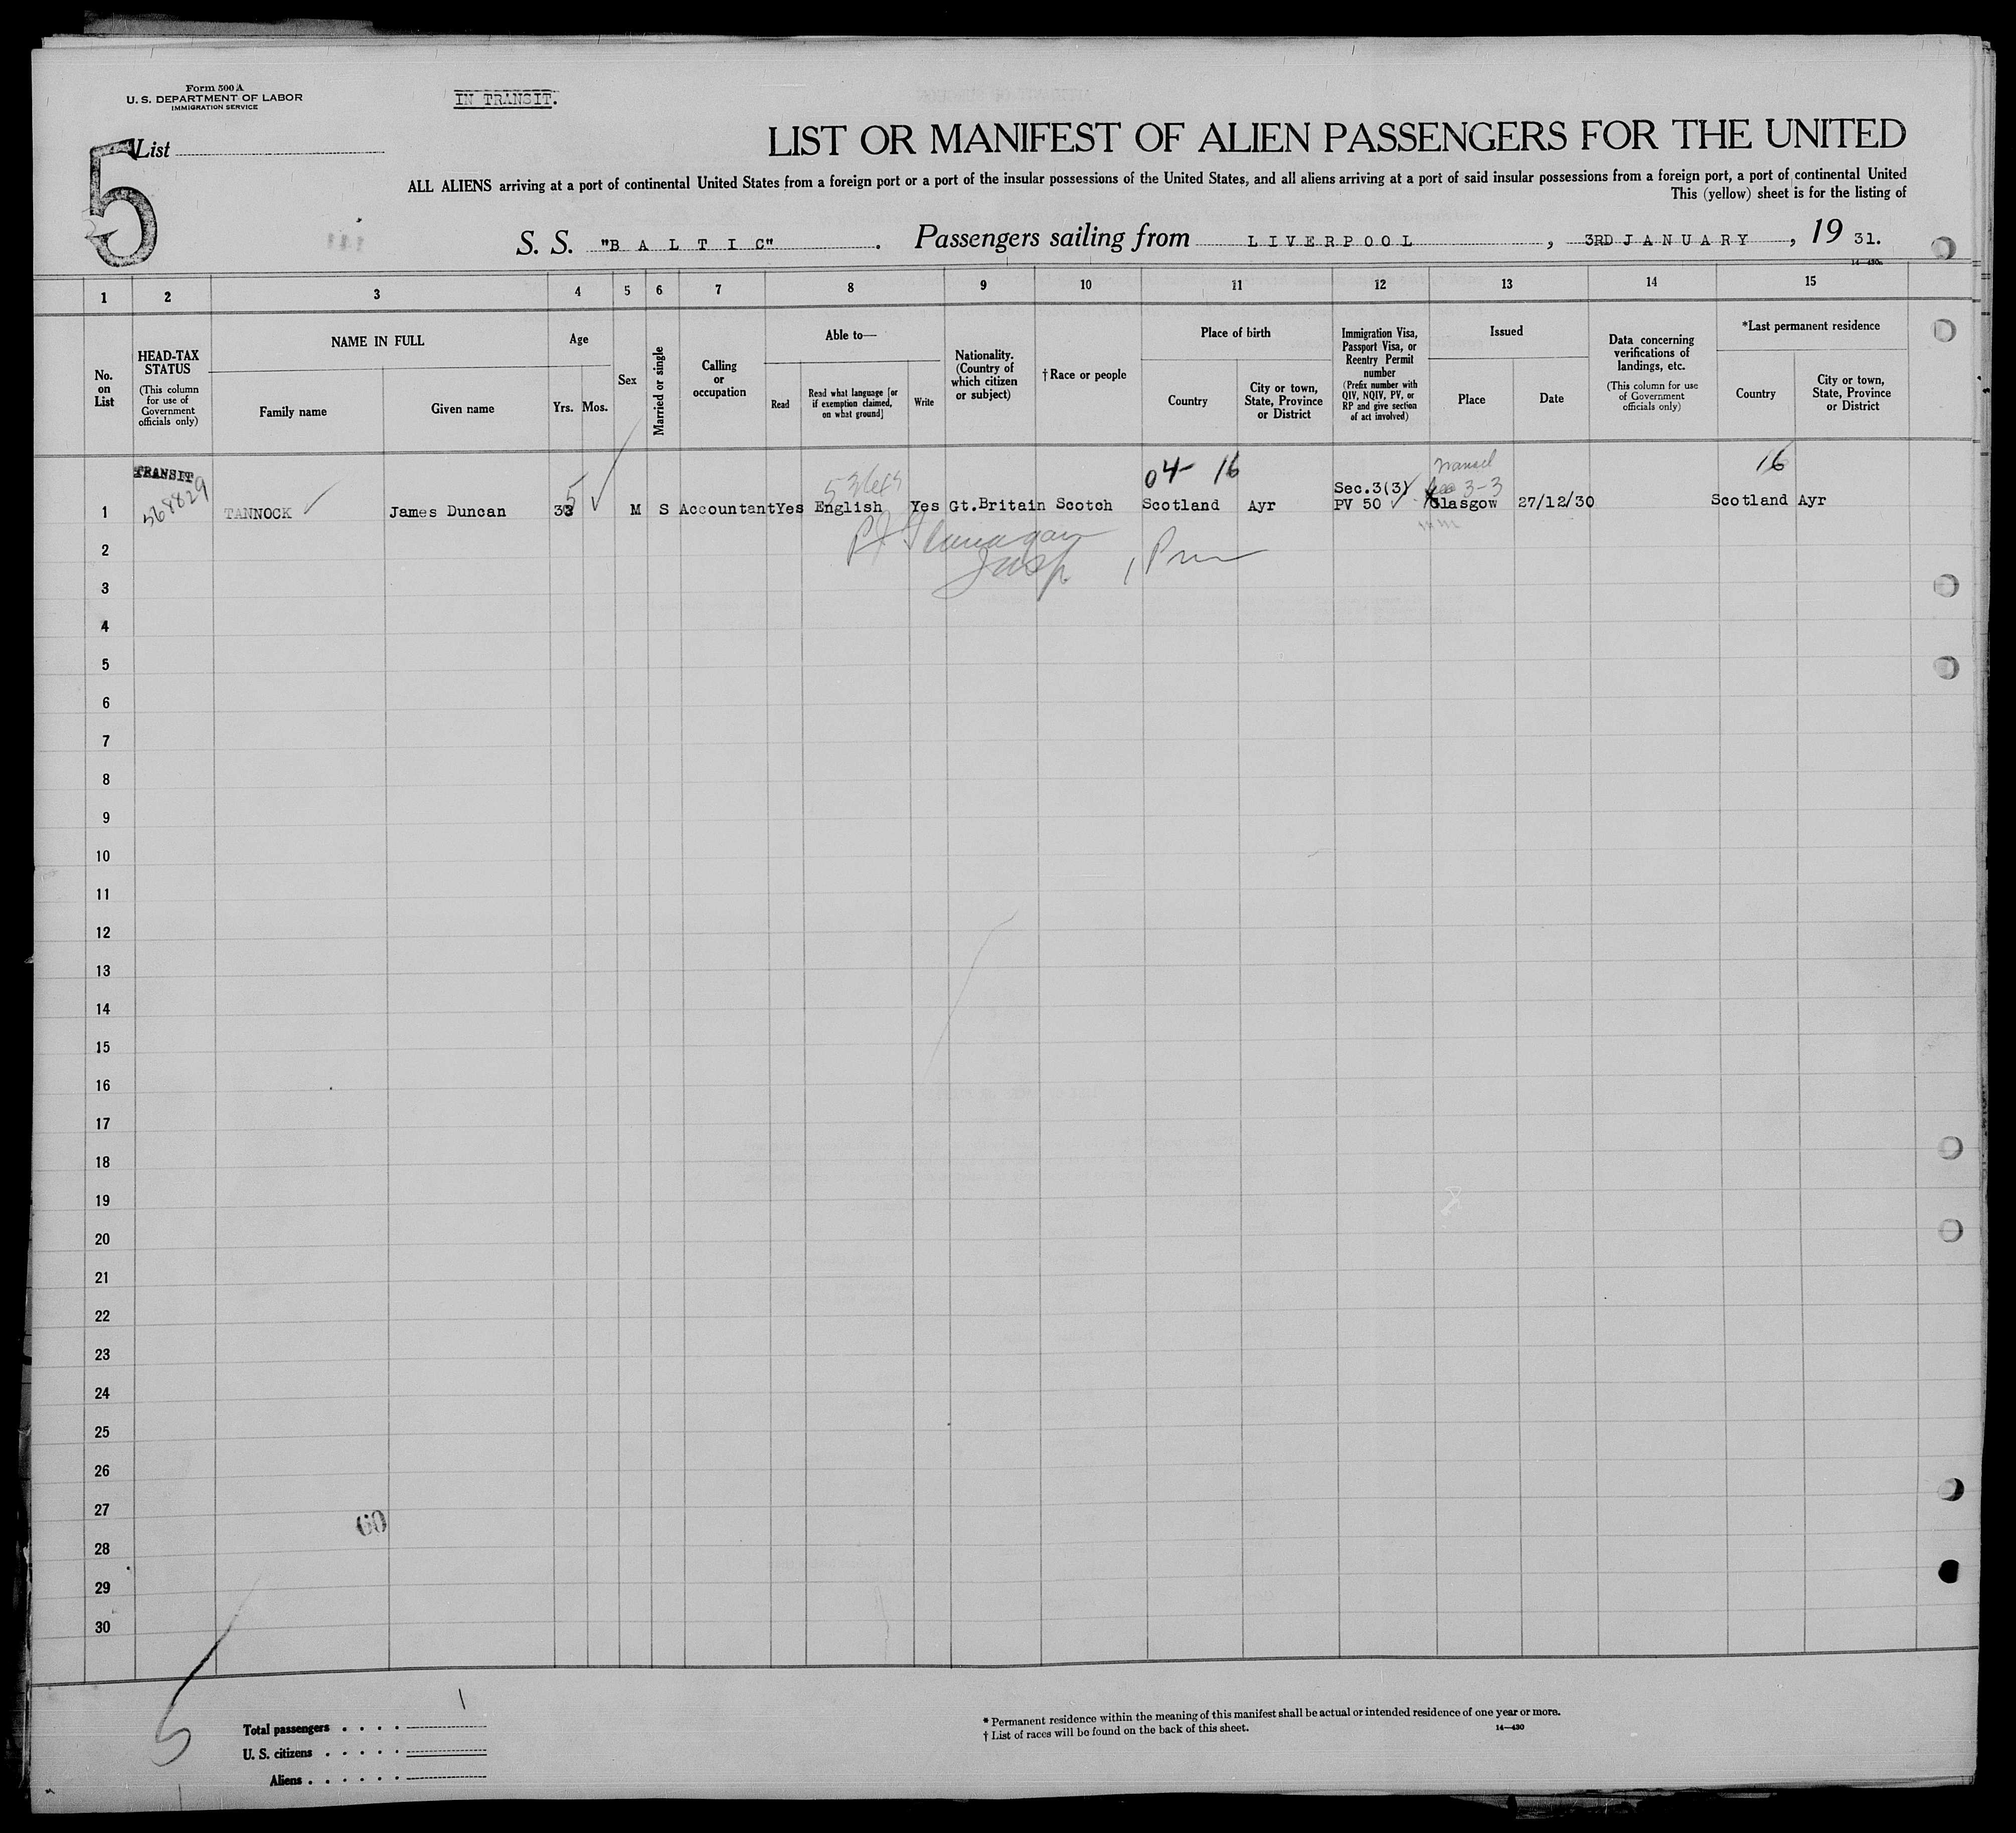 Form 500 A
U. S. DEPARTMENT OF LABOR
IMMIGRATION SERVICE
IN TRANSIT.
5
List
LIST OR MANIFEST OF ALIEN PASSENGERS FOR THE UNITED
ALL ALIENS arriving at a port of continental United States from a foreign port or a port of the insular possessions of the United States, and all aliens arriving at a port of said insular possessions from a foreign port, a port of continental United
This (yellow) sheet is for the listing of
S. S. "B A L T I C" . Passengers sailing from L I V E R P O O L , 3RD J A N U A R Y , 19 31.
14—430a
1 2 3 4 5 6 7 8 9 10 11 12 13 14 15
No. on List
HEAD-TAX STATUS
(This column for use of Government officials only)
NAME IN FULL
Family name
Given name
Age
Yrs. Mos.
Sex
Married or single
Calling or occupation
Able to—
Read
Read what language [or if exemption claimed, on what ground]
Write
Nationality. (Country of which citizen or subject)
†Race or people
Place of birth
Country
City or town, State, Province or District
Immigration Visa, Passport Visa, or Reentry Permit number
(Prefix number with QIV, NQIV, PV, or RP and give section of act involved)
Issued
Place
Date
Data concerning verifications of landings, etc.
(This column for use of Government officials only)
*Last permanent residence
Country
City or town, State, Province or District
TRANSIT
568829
5
04- 16
Sec.3(3)
3-3
16
1 TANNOCK James Duncan 33 M S Accountant Yes English Yes Gt.Britain Scotch Scotland Ayr PV 50 Glasgow 27/12/30 Scotland Ayr
2
3
4
5
6
7
8
9
10
11
12
13
14
15
16
17
18
19
20
21
22
23
24
25
26
27
60
28
29
30
5
Total passengers . . . . 1
U. S. citizens . . . . .
Aliens . . . . . .
* Permanent residence within the meaning of this manifest shall be actual or intended residence of one year or more.
† List of races will be found on the back of this sheet.
14—430